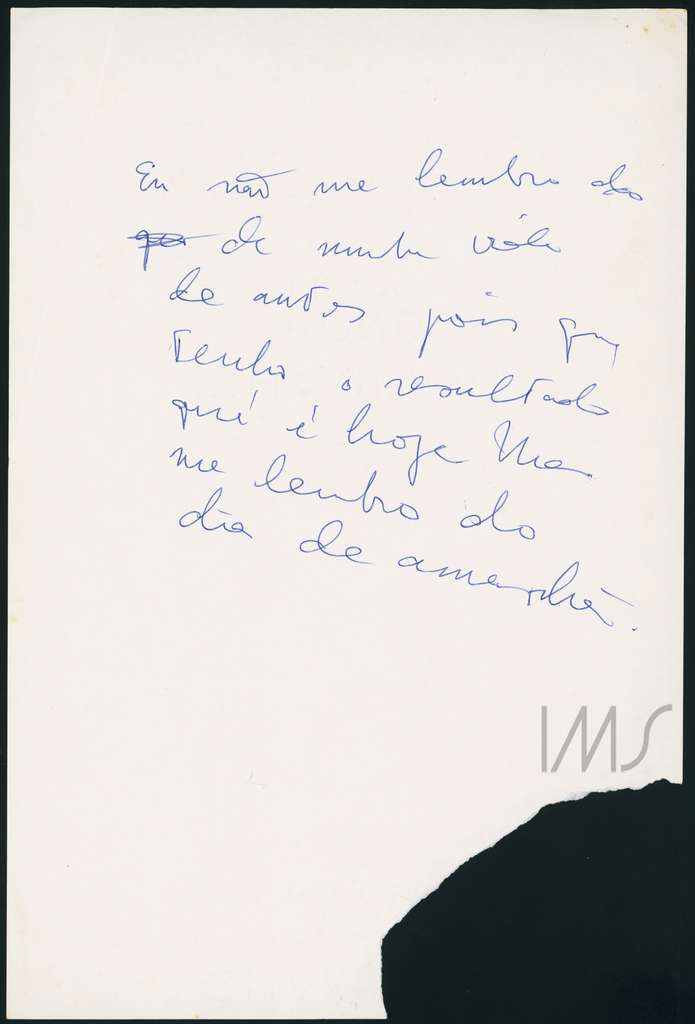 Eu não me lembro do
de minha vida
de antes pois que
tenho o resultado
que é hoje Mas
me lembro do
dia de amanhã.
IMS